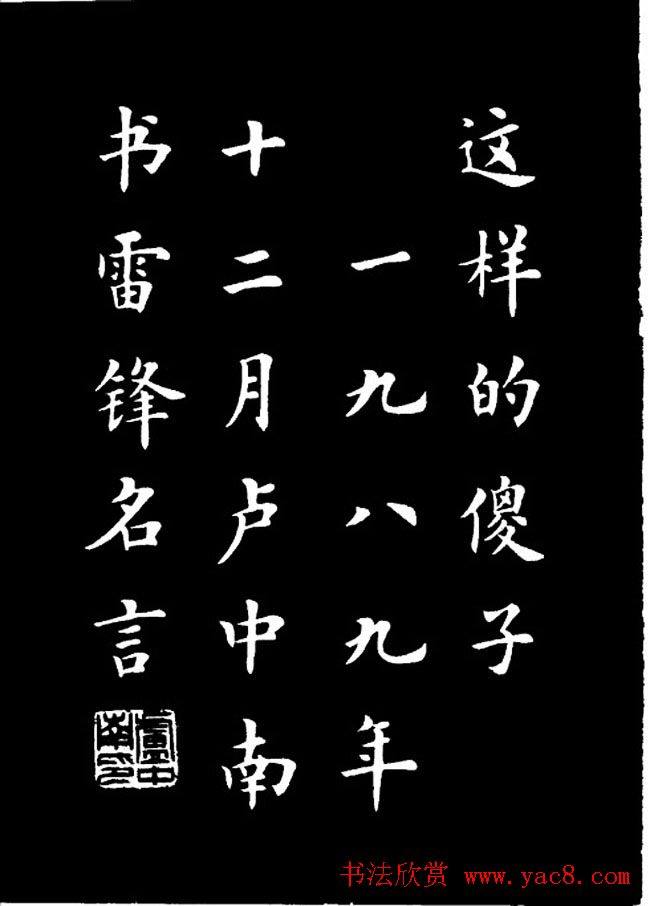 这样的傻子
一九八九年
十二月卢中南
书雷锋名言
卢中南印
书法欣赏 www.yac8.com